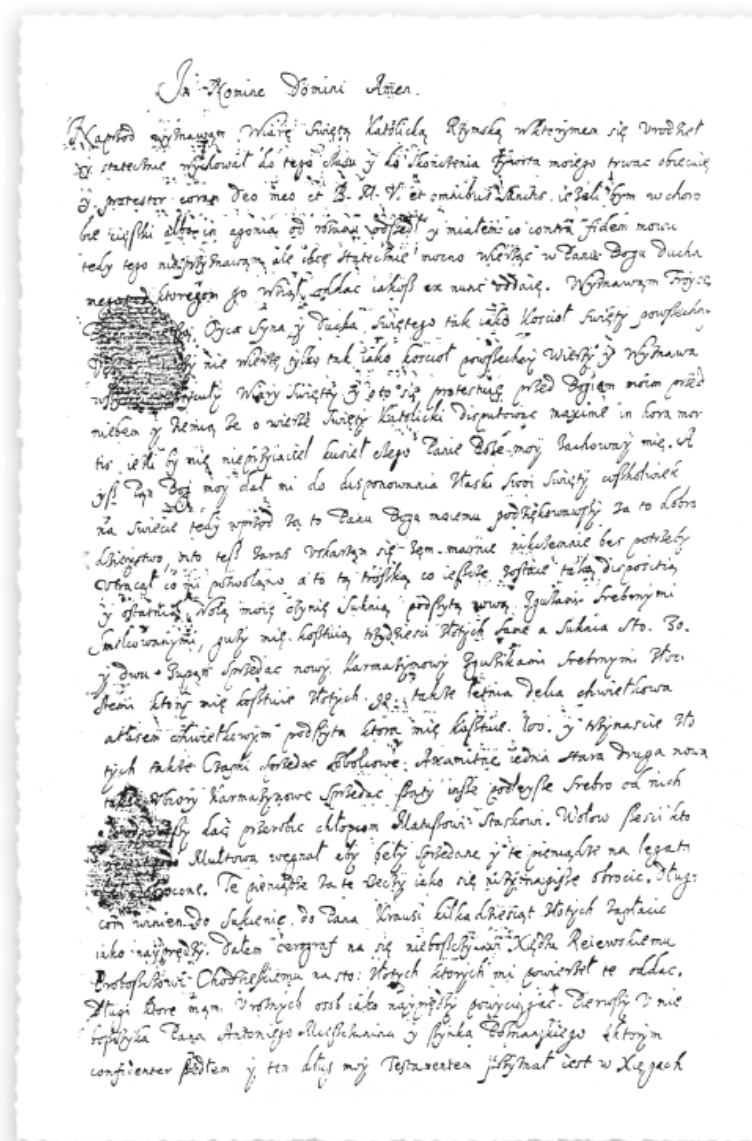 In Nomine Domini Amen.
Naprzod wyznawam Wiarę Swiętą Katolicką Rzymską wktorymem się Vrodzeł
y statecznie wychował do tego czasu y do skonczenia zywota moiego trwac obiecuię
y protestor coram Deo meo et B. M. V. et omnibus Sanctis. iezeli bym w choro
bie cięszki albo in agonią od rozumu odszedł y miałem co contra fidem mowic
tedy tego nieprzyznawam, ale chcę statecznie mocno wierząc w Panu Bogu Ducha
ktoregom go wziął oddac iakosz ex nunc oddaię. Wyznawam Troycę
Oyca Syna y Ducha Swiętego tak iako Koscioł Swięty powszechny
nie wierzę tylko tak iako koscioł powszechny Wierzy y Wyznawa
Wiary Swięty y oto się protestuię przed Bogiem moim przed
niebem y ziemią ze o wierze Swięty Katolicki disputowac maxime in hora mor
tis iesli by mię nieprzyiaciel kusieł czego Panie Boze moy zachoway mię. A
ysz Pan Bog moy dał mi do disponowania łaski swoi Swięty cosztolwiek
na swiecie tedy wprzod za to Panu Bogu moiemu podziękowawszy za to dobro
dzieystwo, oto tesz zaraz Vskarzam się zem marnie nikczemnie bes potrzeby
Vtracał co mi pozwolano a to tą troszką co ieszcze zostaie taką dispositią
y ostatnią Wolą moię czynię Suknią podszytą nową Zguzami Srebrnymi
Smelcowanymi, guzy mię kosztuią trzydziesci złotych same a Suknia sto. 30.
y dwu Zupan sprzedac nowy Karmazynowy Zguzikami srebrnymi złoc.
stemi ktory mię kosztuie złotych 92. także letnia delia cwiekowa
atłasem cwiekowym podszyta ktora mię kosztuie. 100. y trzynascie zło
tych także Czapki sprzedac sobolowe. Axamitne iedna stara druga nowa
także Vbiory Karmazynowe sprzedac szaty insze podleysze srebro od nich
dac przerobic chłopcom Matuszowi Staszkowi. Wołow szesci kto
Multowa wegnał aby beły sprzedane y te pieniądze na legata
Te pieniądze za te rzeczy iako się nizy napisze obrocic. Dług:
com winien do Sukienic do Pana Krausi kilkadziesiąt złotych zapłacic
iako nayprędzy. Dałem cerograf na się nieboszczykowi Xiędzu Reiewskiemu
Proboszczowi Chodzieskiemu na sto: złotych ktorych mi powierzeł te oddac.
Długi ktore mam Vroznych osob iako nayprędzy powyciągac. Pierwszy V nie
boszczyka Pana Antoniego Mieszczanina y Rynka Poznanskiego zktorym
confidenter szedłem y ten dług moy Testamentem przyznał iest w Xięgach